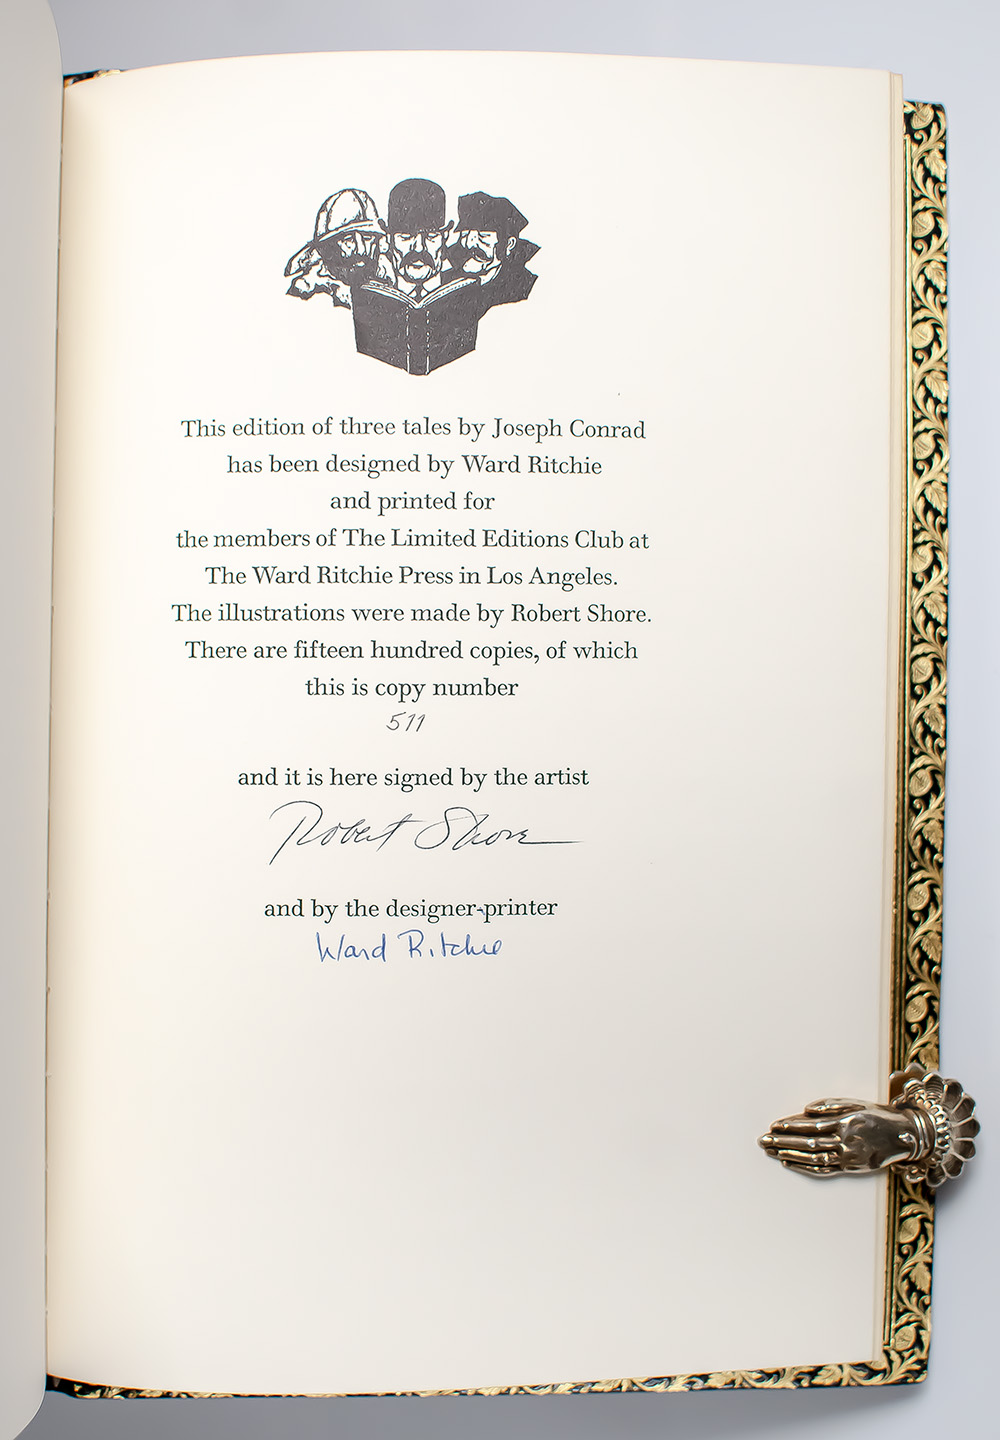 This edition of three tales by Joseph Conrad
has been designed by Ward Ritchie
and printed for
the members of The Limited Editions Club at
The Ward Ritchie Press in Los Angeles.
The illustrations were made by Robert Shore.
There are fifteen hundred copies, of which
this is copy number
511
and it is here signed by the artist
Robert Shore
and by the designer-printer
Ward Ritchie